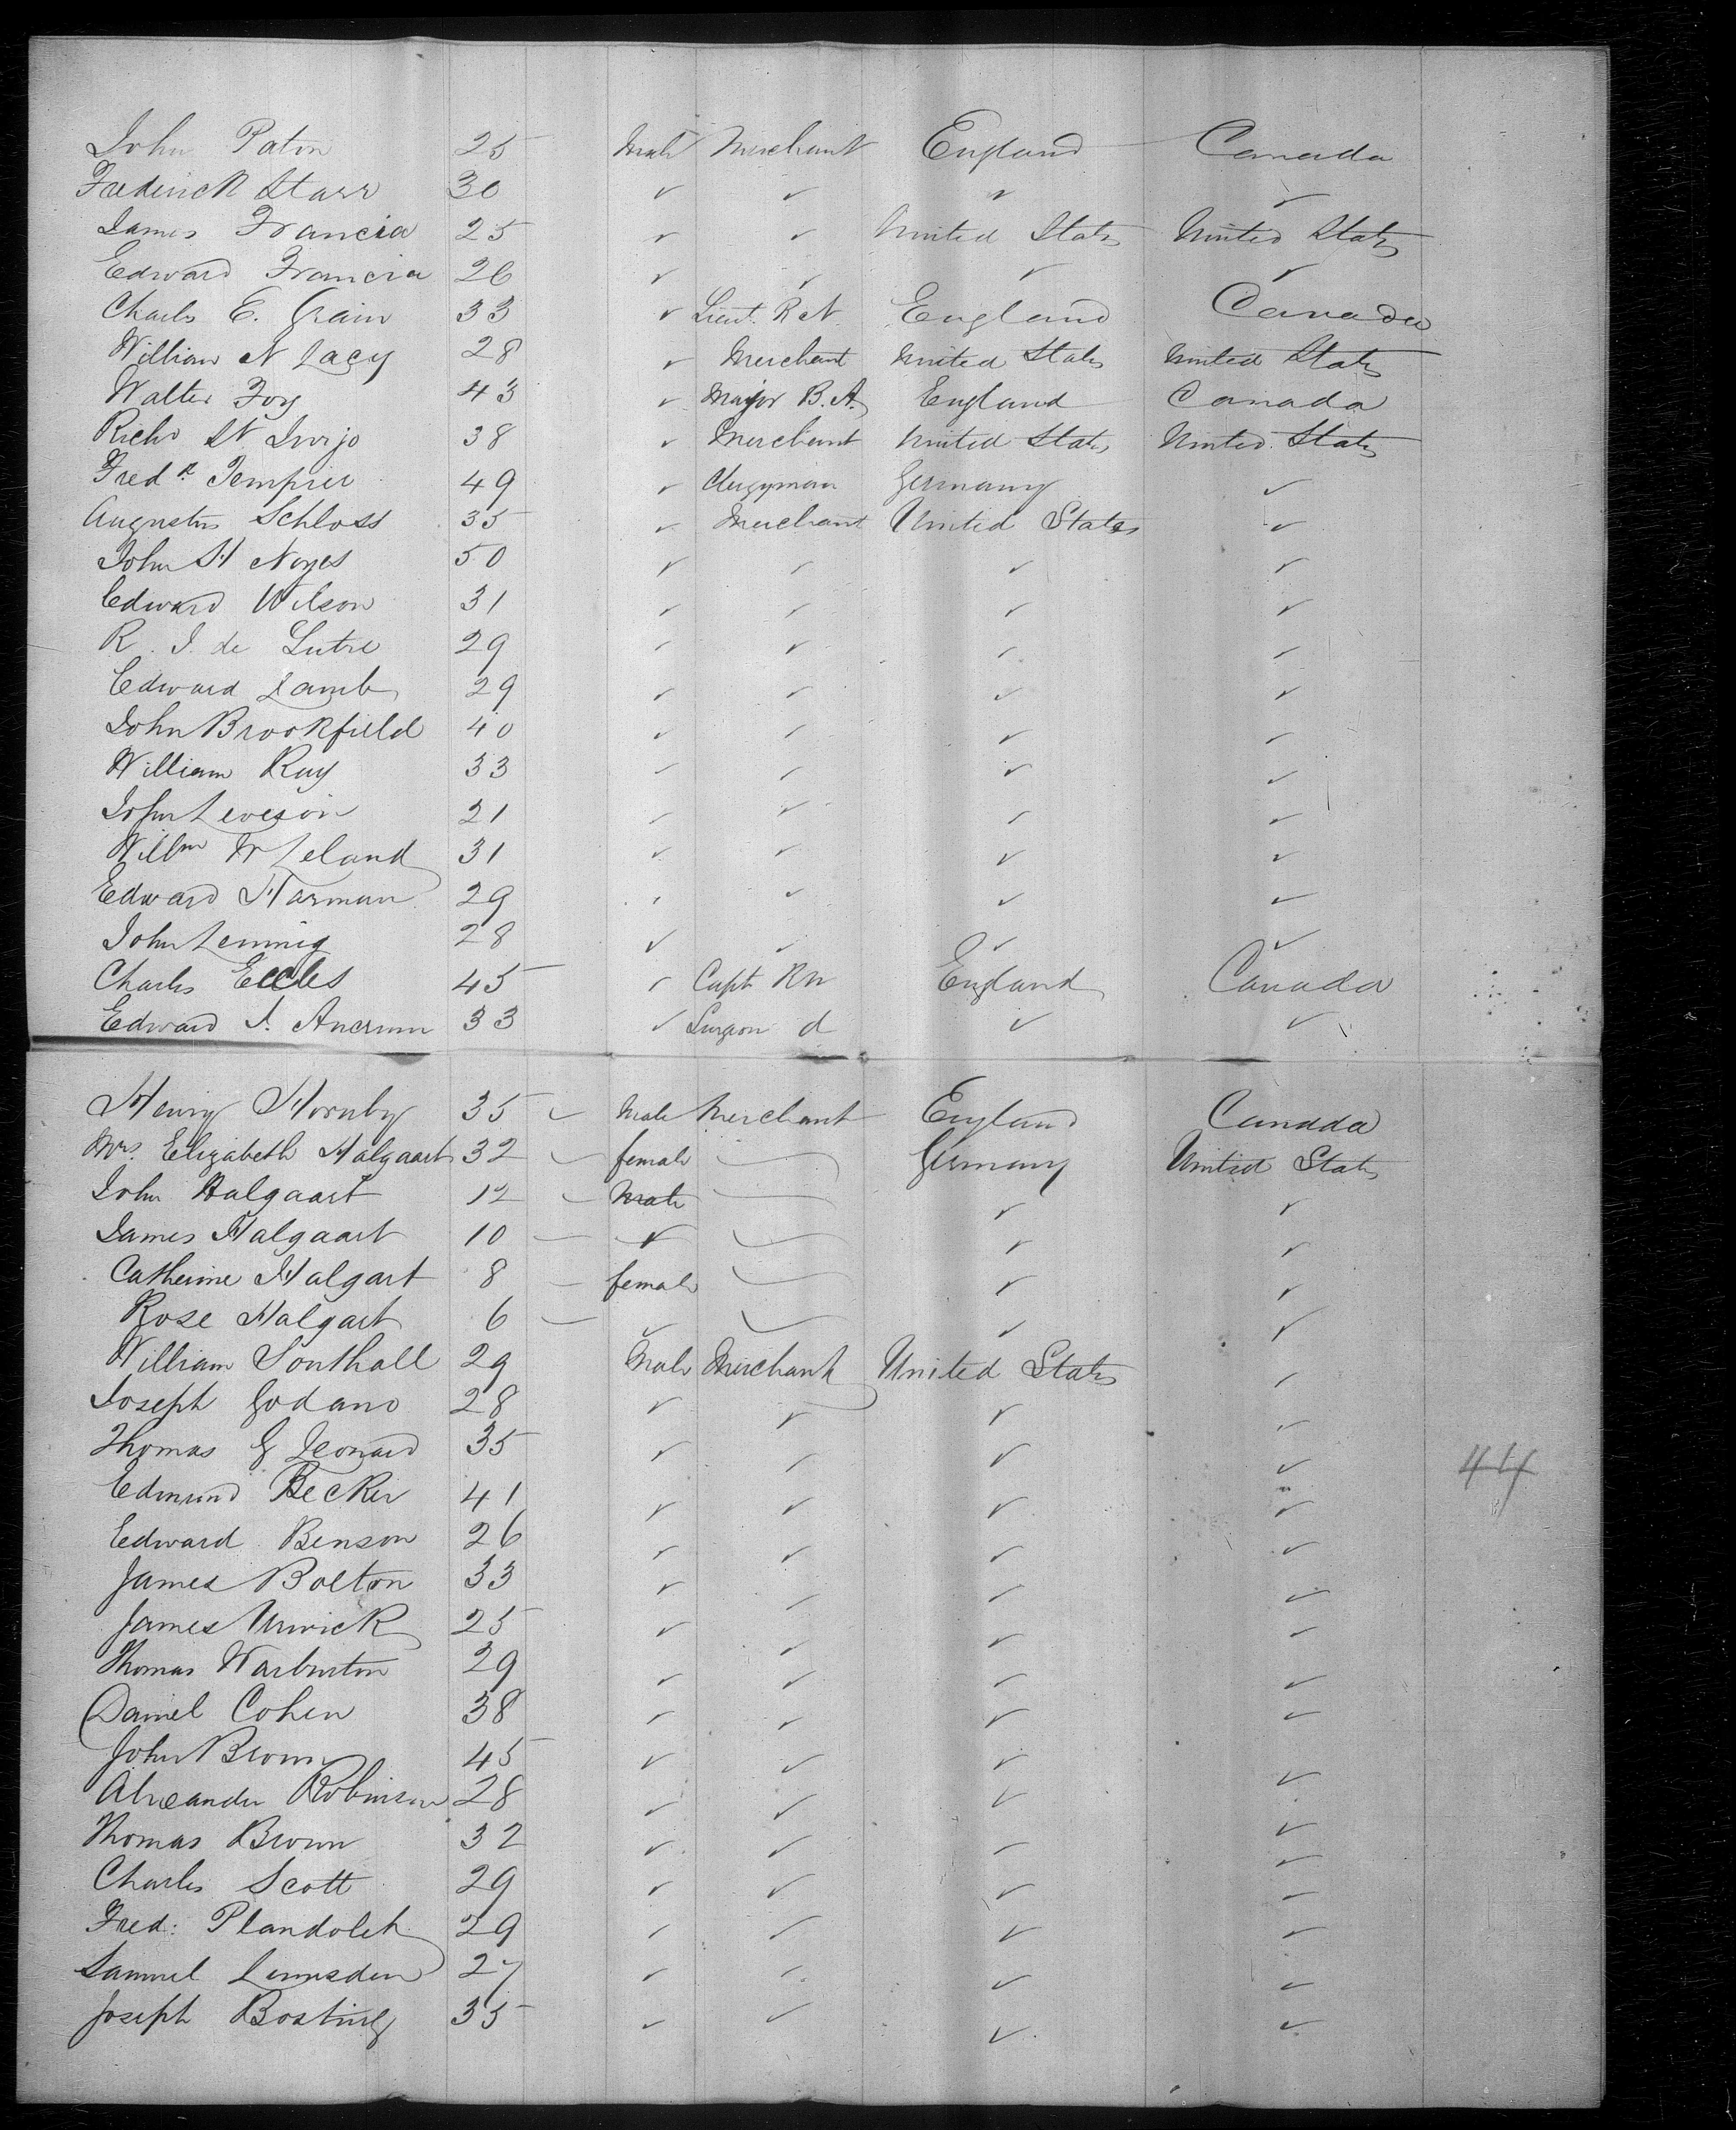 John Paton 25 Male Merchant England Canada
Frederick Starr 30 ✓ ✓ ✓ ✓
James Francia 25 ✓ ✓ United States United States
Edward Francia 26 ✓ ✓ ✓ ✓
Charles E. Grain 33 ✓ Lieut. R N. England Canada
William N Lacy 28 ✓ Merchant United States United States
Walter Foy 43 ✓ Major B. A. England Canada
Richd St 38 ✓ Merchant United States United States
Fredk. Tempier 49 ✓ Clergyman Germany ✓
Augustus Schloss 35 ✓ Merchant United States ✓
John H Noyes 50 ✓ ✓ ✓ ✓
Edward Wilson 31 ✓ ✓ ✓ ✓
R. J. de Lutre 29 ✓ ✓ ✓ ✓
Edward Lamb 29 ✓ ✓ ✓ ✓
John Brookfield 40 ✓ ✓ ✓ ✓
William Ray 33 ✓ ✓ ✓ ✓
John Leveson 21 ✓ ✓ ✓ ✓
Willm W Leland 31 ✓ ✓ ✓ ✓
Edward Harman 29 ✓ ✓ ✓ ✓
John Lennig 28 ✓ ✓ ✓ ✓
Charles Eccles 45 ✓ Capt. RN England Canada
Edward A. Ancrum 33 ✓ Surgeon d ✓ ✓
Henry Hornby 35 Male Merchant England Canada
Mrs. Elizabeth Halgaart 32 female Germany United States
John Halgaart 12 Male ✓ ✓
James Halgaart 10 ✓ ✓ ✓
Catherine Halgart 8 female ✓ ✓
Rose Halgart 6 ✓ ✓ ✓
William Southall 29 Male Merchant United States ✓
Joseph Godano 28 ✓ ✓ ✓ ✓
Thomas G Leonard 35 ✓ ✓ ✓ ✓
44
Edmund Becker 41 ✓ ✓ ✓ ✓
Edward Benson 26 ✓ ✓ ✓ ✓
James Bolton 33 ✓ ✓ ✓ ✓
James Unwick 25 ✓ ✓ ✓ ✓
Thomas Warburton 29 ✓ ✓ ✓ ✓
Daniel Cohen 38 ✓ ✓ ✓ ✓
John Brown 45 ✓ ✓ ✓ ✓
Alexander Robinson 28 ✓ ✓ ✓ ✓
Thomas Brown 32 ✓ ✓ ✓ ✓
Charles Scott 29 ✓ ✓ ✓ ✓
Fred: Plandolet 29 ✓ ✓ ✓ ✓
Samuel Lumsden 27 ✓ ✓ ✓ ✓
Joseph Bosting 35 ✓ ✓ ✓ ✓